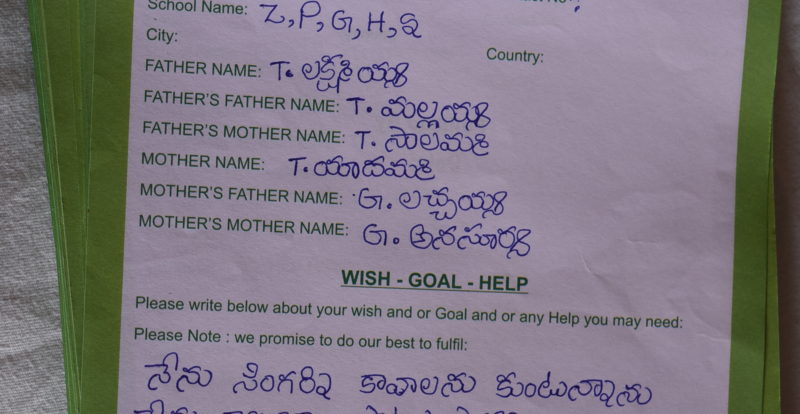 School Name: Z, P, G, H, S
City:
Country:
FATHER NAME: T. లక్ష్మయ్య
FATHER'S FATHER NAME: T. మల్లయ్య
FATHER'S MOTHER NAME: T. సాలమ్మ
MOTHER NAME: T. యాదమ్మ
MOTHER'S FATHER NAME: G. లచ్చయ్య
MOTHER'S MOTHER NAME: G. అనసూర్య
WISH - GOAL - HELP
Please write below about your wish and or Goal and or any Help you may need:
Please Note : we promise to do our best to fulfil:
నేను సింగర్ని కావాలను కుంటున్నాను